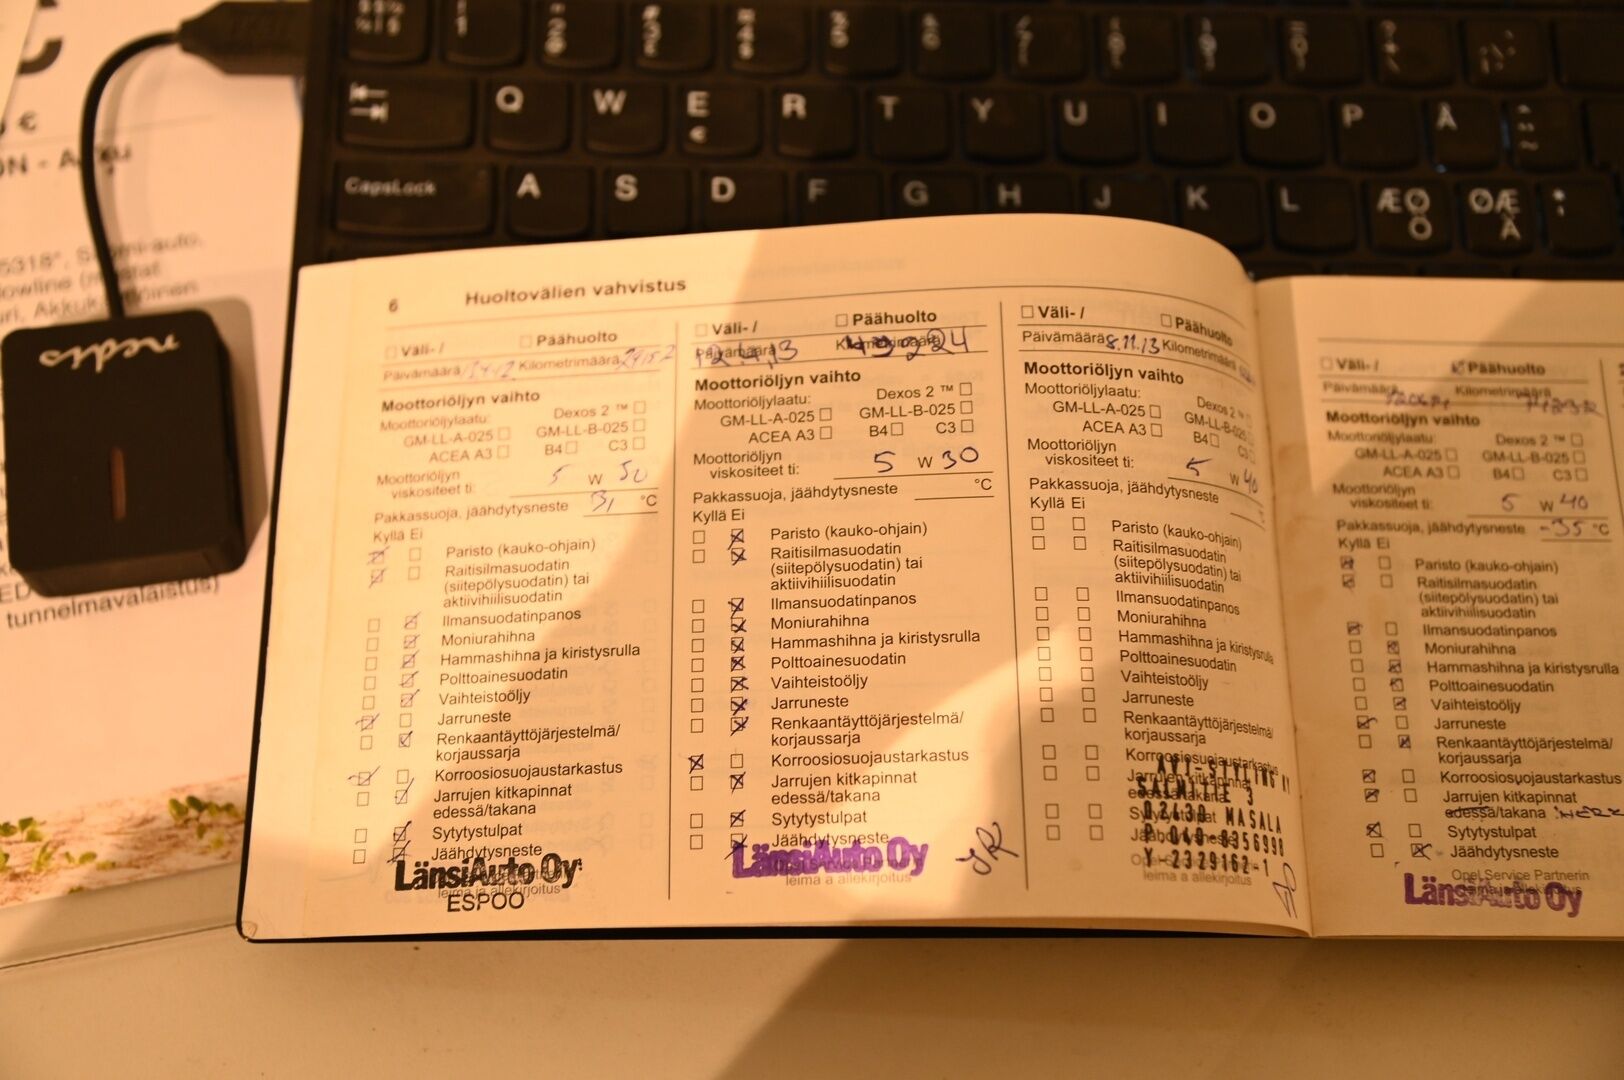 €
5318", Suomi-auto,
tunnelmavalaistus)
nedis
Q W E R T Y U I O P Å
€
CapsLock A S D F G H J K L ÆØ ØÆ
Ö Ä
6 Huoltovälien vahvistus
Väli- / Päähuolto
Päivämäärä Kilometrimäärä
Moottoriöljyn vaihto
Moottoriöljylaatu: Dexos 2 ™
GM-LL-A-025 GM-LL-B-025
ACEA A3 B4 C3
Moottoriöljyn
viskositeet ti: 5 W 30
Pakkassuoja, jäähdytysneste °C
Kyllä Ei
Paristo (kauko-ohjain)
Raitisilmasuodatin
(siitepölysuodatin) tai
aktiivihiilisuodatin
Ilmansuodatinpanos
Moniurahihna
Hammashihna ja kiristysrulla
Polttoainesuodatin
Vaihteistoöljy
Jarruneste
Renkaantäyttöjärjestelmä/
korjaussarja
Korroosiosuojaustarkastus
Jarrujen kitkapinnat
edessä/takana
Sytytystulpat
Jäähdytysneste
LänsiAuto Oy
leima ja allekirjoitus
ESPOO
Väli- / Päähuolto
Päivämäärä 12.4.13 Kilometrimäärä 49224
Moottoriöljyn vaihto
Moottoriöljylaatu: Dexos 2 ™
GM-LL-A-025 GM-LL-B-025
ACEA A3 B4 C3
Moottoriöljyn
viskositeet ti: 5 W 30
Pakkassuoja, jäähdytysneste °C
Kyllä Ei
Paristo (kauko-ohjain)
Raitisilmasuodatin
(siitepölysuodatin) tai
aktiivihiilisuodatin
Ilmansuodatinpanos
Moniurahihna
Hammashihna ja kiristysrulla
Polttoainesuodatin
Vaihteistoöljy
Jarruneste
Renkaantäyttöjärjestelmä/
korjaussarja
Korroosiosuojaustarkastus
Jarrujen kitkapinnat
edessä/takana
Sytytystulpat
Jäähdytysneste
LänsiAuto Oy
leima a allekirjoitus
Väli- / Päähuolto
Päivämäärä 8.11.13 Kilometrimäärä
Moottoriöljyn vaihto
Moottoriöljylaatu: Dexos 2 ™
GM-LL-A-025 GM-LL-B-025
ACEA A3 B4
Moottoriöljyn
viskositeet ti: 5 W 40
Pakkassuoja, jäähdytysneste
Kyllä Ei
Paristo (kauko-ohjain)
Raitisilmasuodatin
(siitepölysuodatin) tai
aktiivihiilisuodatin
Ilmansuodatinpanos
Moniurahihna
Hammashihna ja kiristysrulla
Polttoainesuodatin
Vaihteistoöljy
Jarruneste
Renkaantäyttöjärjestelmä/
korjaussarja
Korroosiosuojaustarkastus
Jarrujen kitkapinnat
edessä/takana
Sytytystulpat
Jäähdytysneste
SALMITIE 3
02430 MASALA
P 040-8356998
Y 2329162-1
leima a allekirjoitus
Väli- / Päähuolto
Päivämäärä Kilometrimäärä
Moottoriöljyn vaihto
Moottoriöljylaatu: Dexos 2 ™
GM-LL-A-025 GM-LL-B-025
ACEA A3 B4 C3
Moottoriöljyn
viskositeet ti: 5 W 40
Pakkassuoja, jäähdytysneste -35 °C
Kyllä Ei
Paristo (kauko-ohjain)
Raitisilmasuodatin
(siitepölysuodatin) tai
aktiivihiilisuodatin
Ilmansuodatinpanos
Moniurahihna
Hammashihna ja kiristysrulla
Polttoainesuodatin
Vaihteistoöljy
Jarruneste
Renkaantäyttöjärjestelmä/
korjaussarja
Korroosiosuojaustarkastus
Jarrujen kitkapinnat
edessä/takana
Sytytystulpat
Jäähdytysneste
Opel Service Partnerin
LänsiAuto Oy